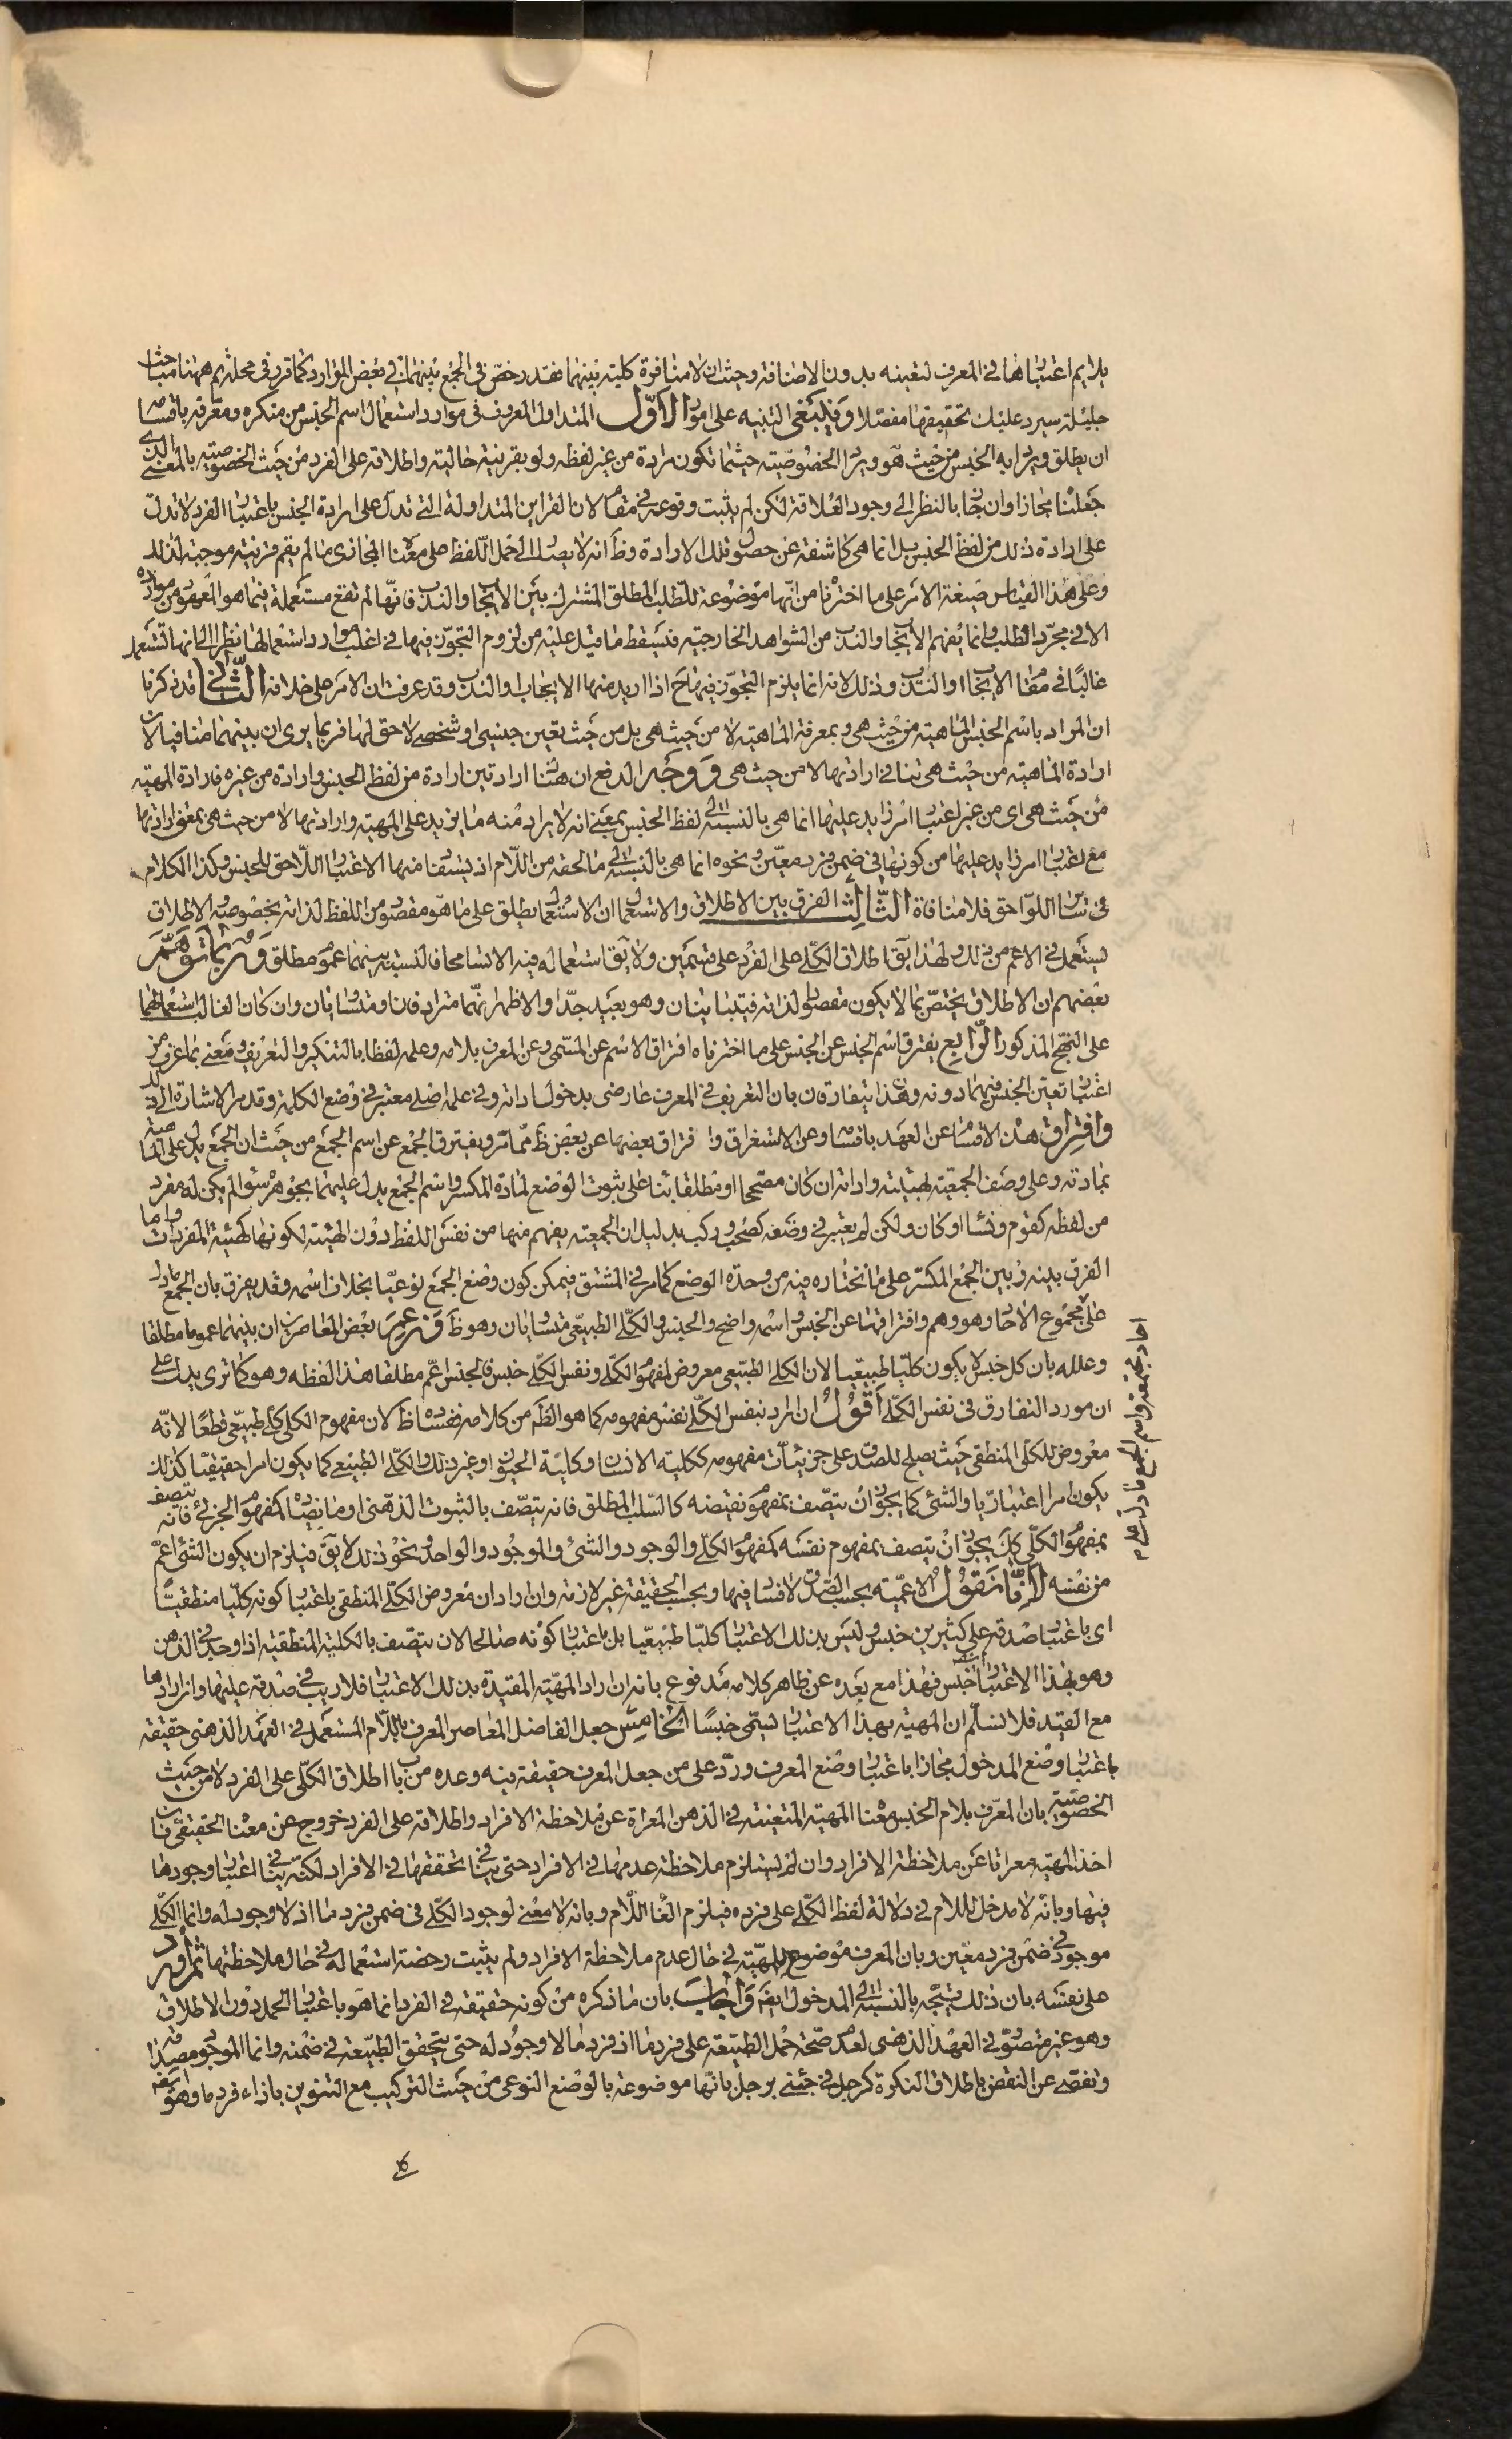 يلايم اعتبارها في المعرف لتغنيه بدون الاضافة وحيث ان لا منافرة كلية بينهما فقد رخص في الجمع بينهما في بعض الموارد كما قرر في محله ثم ههنا مباحث
جليلة سيرد عليك تحقيقها مفصلا وينبغي التنبيه على امور الاول المتداول المعروف في موارد استعمال اسم الجنس من منكره ومعرفه باقسامه
ان يطلق ويراد به الجنس من حيث هو ويراد الخصوصية حيثما تكون مرادة من غير لفظه ولو بقرينة حالية واطلاقه على الفرد من حيث الخصوصية بالمعنى الذى
جعلنا مجازا وان جاز بالنظر الى وجود العلاقة لكن لم يثبت وقوعه في مقام لان القراين المتداولة التي تدل على ارادة الجنس باعتبار الفرد لا تدل
على ارادة ذلك من لفظ الجنس بل انما هي كاشفة عن حصول تلك الارادة وظ انه لا يصار الى حمل اللفظ على معناه المجازى ما لم يقم قرينة موجبة لذلك
وعلى هذا القياس صيغة الامر على ما اخترنا من انها موضوعة للطلب المطلق المشترك بين الايجاب والندب فانها لم تقع مستعملة فيما هو المعهود من موارده
الا في مجرد الطلب وانما يفهم الايجاب والندب من الشواهد الخارجية فيسقط ما قيل عليه من لزوم التجوز فيها في اغلب موارد استعمالها نظرا الى انها تستعمل
غالبا في مقام الايجاب او الندب وذلك لانه انما يلزم التجوز فيها ح اذا اريد منها الايجاب او الندب وقد عرفت ان الامر على خلافه الثاني قد ذكرنا
ان المراد باسم الجنس الماهية من حيث هي وبمعرفه الماهية لا من حيث هي بل من حيث تعين جنسي او شخصي لاحق لها فربما يرى ان بينهما منافيا لان
ارادة الماهية من حيث هي تنافي ارادتها لا من حيث هي ووجه الدفع ان هنا ارادتين ارادة من لفظ الجنس وارادة من غيره فارادة المهية
من حيث هي اى من غير اعتبار امر زايد عليها انما هي بالنسبة الى لفظ الجنس بمعنى انه لا يراد منه ما يزيد على المهية وارادتها لا من حيث هي بمعنى ارادتها
مع اعتبار امر زايد عليها من كونها في ضمن فرد معين ونحوه انما هي بالنسبة الى ما لحقه من اللام اذ يستفاد منها الاعتبار اللاحق للجنس وكذا الكلام
في ساير اللواحق فلا منافاة الثالث الفرق بين الاطلاق والاستعمال ان الاستعمال يطلق على ما هو مقصود من اللفظ لذاته بخصوصه والاطلاق
يستعمل في الاعم من ذلك ولهذا يق اطلاق الكلي على الفرد على قسمين ولا يق استعماله فيه الا تسامحا فالنسبة بينهما عموم مطلق وربما توهم
بعضهم ان الاطلاق يختص بما لا يكون مقصودا لذاته فيتباينان وهو بعيد جدا والاظهر انهما مترادفان ومتساويان وان كان الغالب استعمالهما
على النهج المذكور الرابع يفترق اسم الجنس عن الجنس على ما اخترناه افتراق الاسم عن المسمى وعن المعرف بلامه وعلمه لفظا بالتنكير والتعريف ومعنى بما عرف من
اعتبار تعين الجنس فيهما دونه وهذان يتفارقان بان التعريف في المعرف عارضى بدخول اداته وفي علمه اصلى معتبر في وضع الكلمة وقد مر الاشارة الى ذلك
وافتراق هذه الاقسام عن العهد باقسامه وعن الاستغراق وافتراق بعضها عن بعض ظ مما مر ويفترق الجمع عن اسم الجمع من حيث ان الجمع يدل على الماهية
بمادته وعلى وصف الجمعية بهيئته واداته ان كان مصححا او مطلقا بناء على ثبوت الوضع لمادة المكسر واسم الجمع يدل عليهما بجوهره سواء لم يكن له مفرد
من لفظه كقوم ونساء او كان ولكن لم يعتبر في وضعه كصحب وركب بدليل ان الجمعية يفهم منها من نفس اللفظ دون الهيئة لكونها كهيئة المفردات واما
الفرق بينه وبين الجمع المكسر على ما نختاره فيه من وحدة الوضع كما مر في المشتق فيمكن كون وضع الجمع نوعيا بخلاف اسمه وقد يفرق بان الجمع ما دل
على مجموع الاحاد وهو وهم وافتراقها عن الجنس واسمه واضح والجنس والكلي الطبيعي متساويان وهو ظ وزعم بعض المعاصرين ان بينهما عموما مطلقا
وعلله بان كل جنس لا يكون كليا طبيعيا لان الكلي الطبيعي معروض لمفهوم الكلي ونفس الكلي جنس فالجنس اعم مطلقا هذا لفظه وهو كما ترى يدل على
ان مورد التفارق في نفس الكلي اقول ان اراد بنفس الكلي نفس مفهومه كما هو الظم من كلامه ففساده ظ لان مفهوم الكلي كلي طبيعي قطعا لانه
معروض للكلي المنطقي حيث يصلح للصدق على جزئيات مفهومه ككلية الانسان وكلية الحيوان وغير ذلك والكلي الطبيعي كما يكون امرا حقيقيا كذلك
يكون امرا اعتباريا والشئ كما يجوز ان يتصف بمفهوم نقيضه كالسلب المطلق فانه يتصف بالثبوت الذهنى او ما يضاده كمفهوم الجزئي فانه يتصف
بمفهوم الكلي كك يجوز ان يتصف بمفهوم نفسه كمفهوم الكلي والوجود والشئ والموجود والواحد ونحو ذلك لا يق فيلزم ان يكون الشئ اعم
من نفسه لانا نقول الاعمية بحسب الصدق لا فساد فيها وبحسب الحقيقة غير لازمة وان اراد ان معروض الكلي المنطقي باعتبار كونه كليا منطقيا
اى باعتبار صدقه على كثيرين جنس وليس بذلك الاعتبار كليا طبيعيا بل باعتبار كونه صالحا لان يتصف بالكلية المنطقية اذا وجد في الذهن
وهو بهذا الاعتبار ايضا جنس فهذا مع بعده عن ظاهر كلامه مدفوع بانه ان اراد المهية المقيدة بذلك الاعتبار فلا ريب في صدقه عليها وان ارادها
مع القيد فلا نسلم ان المهية بهذا الاعتبار تسمى جنسا الخامس جعل الفاضل المعاصر المعرف باللام المستعمل في العهد الذهنى حقيقة
باعتبار وضع المدخول مجازا باعتبار وضع المعرف ورد على من جعل المعرف حقيقة فيه وعده من باب اطلاق الكلي على الفرد لا من حيث
الخصوصية بان المعرف بلام الجنس معناه المهية المتعينة في الذهن المعراة عن ملاحظة الافراد واطلاقه على الفرد خروج عن معناه الحقيقي فان
اخذ المهية معراة عن ملاحظة الافراد وان لم يستلزم ملاحظة عدمها في الافراد حتى ينافي تحققها في الافراد لكنه ينافي اعتبار وجودها
فيها وبانه لا مدخل للام في دلالة لفظ الكلي على فرده فيلزم الغاء اللام وبانه لا معنى لوجود الكلي في ضمن فرد ما اذ لا وجود له وانما الكلي
موجود في ضمن فرد معين وبان المعرف موضوع للمهية في حال عدم ملاحظة الافراد ولم يثبت رخصة استعماله في حال ملاحظتها ثم اورد
على نفسه بان ذلك يتجه بالنسبة الى المدخول ايضا واجاب بان ما ذكره من كونه حقيقة في الفرد انما هو باعتبار الحمل دون الاطلاق
وهو غير متصور في العهد الذهنى لعدم صحة حمل الطبيعة على فرد ما اذ فرد ما لا وجود له حتى يتحقق الطبيعة في ضمنه وانما الموجود مصداقه
وتفصى عن النقض باطلاق النكرة كرجل في جئني برجل بانها موضوعة بالوضع النوعى من حيث التركيب مع التنوين بازاء فرد ما وهو ايضا
احاد مجتمعة واسم الجمع ما دل على